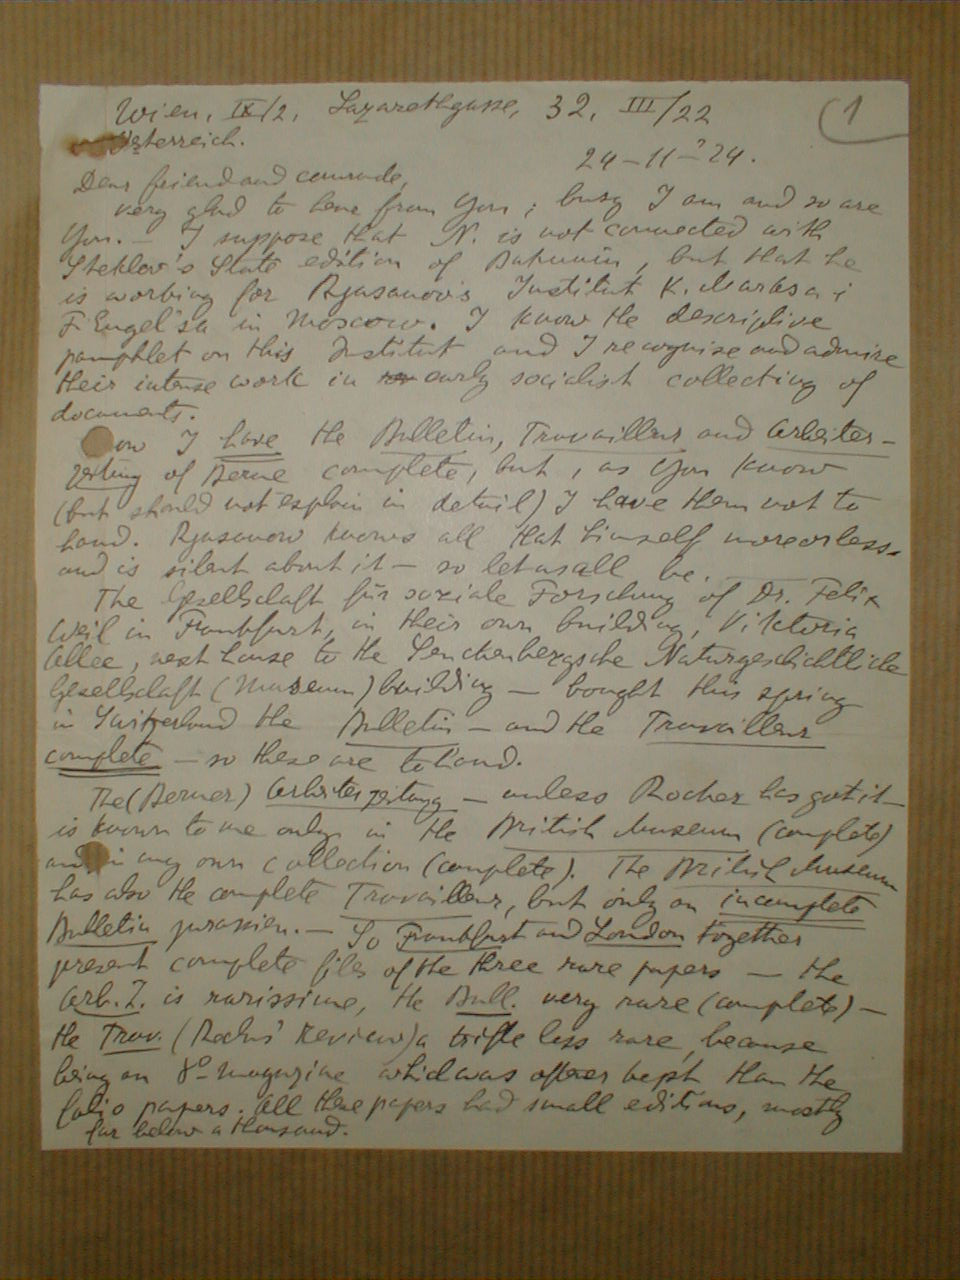 Wien, IX/2, Lazarethgasse, 32, III/22
(1
Österreich.
24-11-24.
Dear friend and comrade,
very glad to hear from you; busy I am and so are
you. — I suppose that N. is not connected with
Steklov's State edition of Bakunin, but that he
is working for Rjasanov's Institut K. Marksa i
F. Engel'sa in Moscow. I know the descriptive
pamphlet on this Institut and I recognise and admire
their intense work in early socialist collecting of
documents.
Now I have the Bulletin, Travailleur and Arbeiter-
zeitung of Berne complete, but, as you know
(but should not explain in detail) I have them not to
hand. Rjasanow knows all that himself moreorless
and is silent about it — so let us all be.
The Gesellschaft für soziale Forschung of Dr. Felix
Weil in Frankfurt, in their own building, Viktoria
Allee, next house to the Senckenbergsche Naturgeschichtliche
Gesellschaft (Museum) building — bought this spring
in Switzerland the Bulletin — and the Travailleur
complete — so these are to hand.
The (Berner) Arbeiterzeitung — unless Rocker has got it —
is known to me only in the British Museum (complete)
and in my own collection (complete). The British Museum
has also the complete Travailleur, but only an incomplete
Bulletin jurassien. — So Frankfurt and London together
present complete files of the three rare papers — the
Arb. Z. is rarissime, the Bull. very rare (complete) —
the Trav. (Reclus' Review) a trifle less rare, because
being an 8º magazine which was often kept than the
folio papers. All these papers had small editions, mostly
far below a thousand.